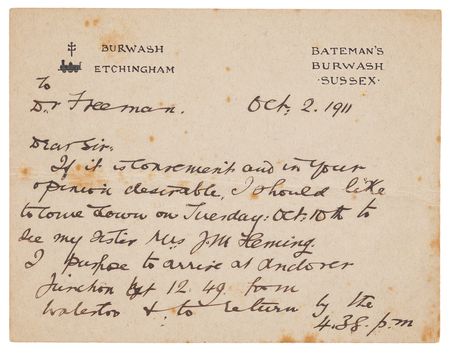 BURWASH
ETCHINGHAM
BATEMAN'S
BURWASH
·SUSSEX·
To
Dr Freeman.
Oct: 2. 1911
Dear Sir:
If it is convenient and in your
opinion desirable, I should like
to come down on Tuesday: Oct: 10th to
see my sister Mrs J.M. Fleming.
I purpose to arrive at Andover
Junction at 12.49 from
Waterloo & to return by the
4.38. p.m